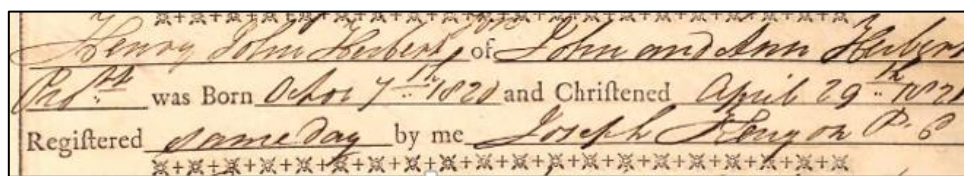 Henry John Herbert, of John and Ann Herbert
was Born Octor 7th 1820 and Chriſtened April 29th 1821
Regiſtered same day by me Joseph Kenyon P. C